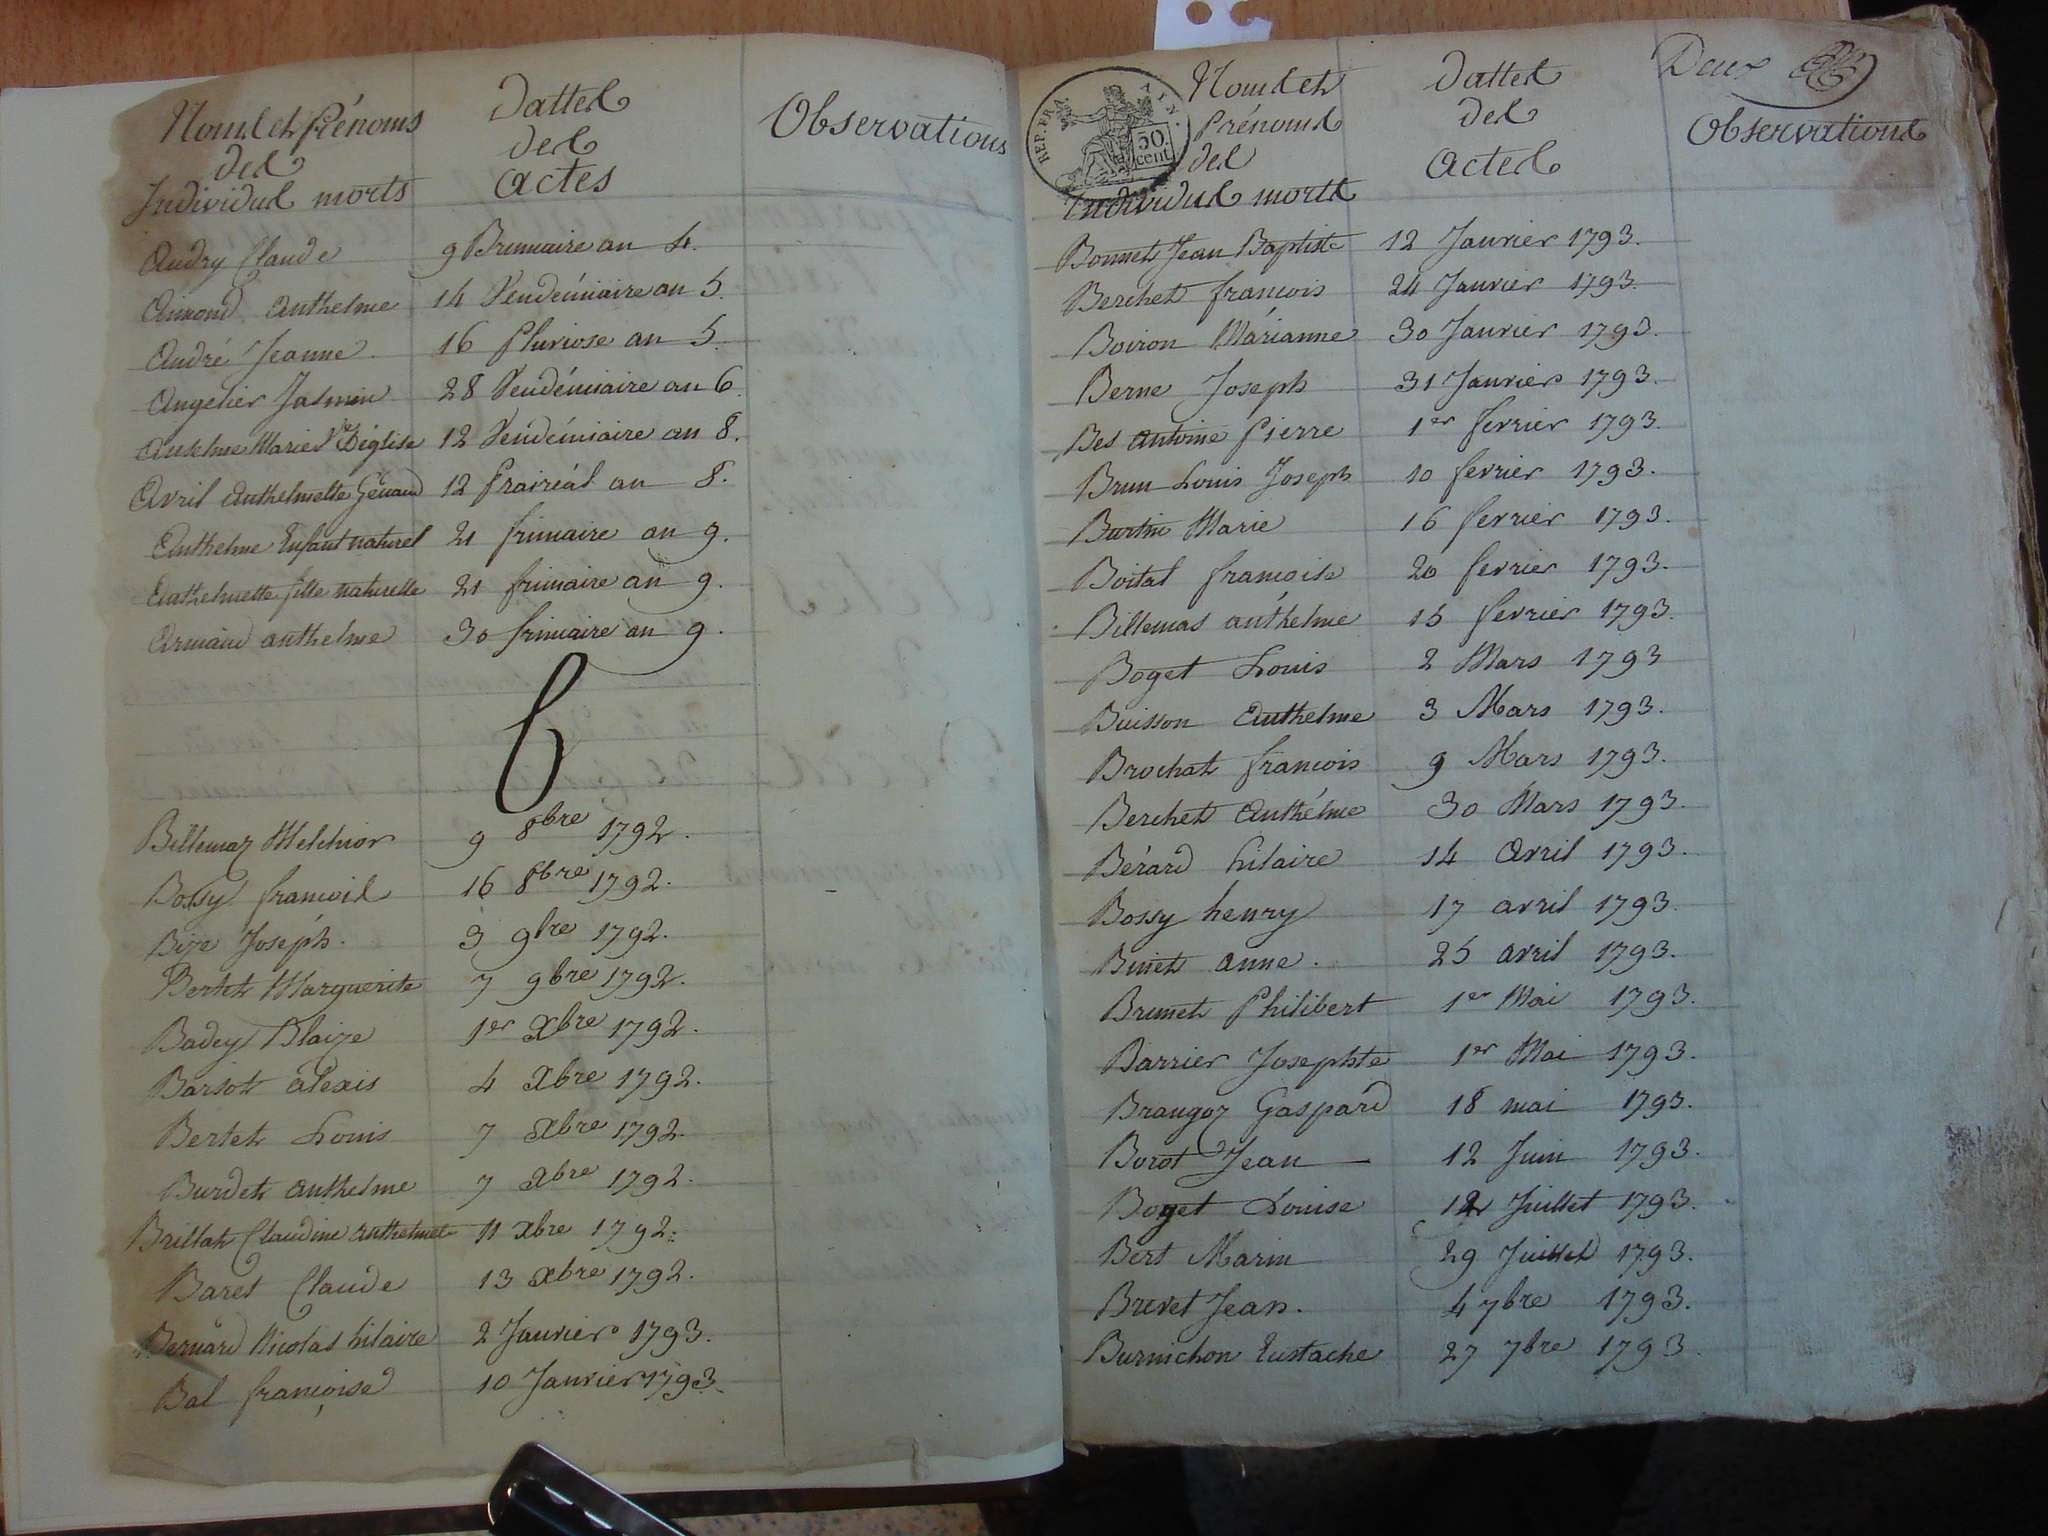 Noms et Prénoms
des
Individus morts
Dattes
des
Actes
Observations
Audry Claude 9 Brumaire an 4.
Aimond Anthelme 14 Vendémiaire an 5.
André Jeanne 16 Pluviose an 5.
Angelier Jasmin 28 Vendémiaire an 6
Anselme Marie Ve Déglise 12 Vendémiaire an 8.
Avril Anthelmette 12 Prairéal an 8.
Anthelme Enfant naturel 21 frimaire an 9.
Anthelmette fille naturelle 21 frimaire an 9.
Armand anthelme 30 frimaire an 9.
B
Billemaz Melchior 9 8bre 1792.
Bossy francois 16 8bre 1792.
Bize Joséph. 3 9bre 1792.
Bertet Marguerite 7 9bre 1792.
Badey Blaize 1er Xbre 1792.
Barsot alexis 4 Xbre 1792.
Bertet Louis 7 Xbre 1792.
Burdet anthelme 7 Xbre 1792.
Brillat Claudine anthelmet 11 Xbre 1792.
Baret Claude 13 Xbre 1792.
Bernard Nicolas hilaire 2 Janvier 1793.
Bal françoise 10 Janvier 1793.
Deux
REP. FRA. AIN.
50
cent.
Noms et
Prénoms
des
Individus morts
Dattes
des
Actes
Observations
Bonnet Jean Baptiste 12 Janvier 1793.
Berchet francois 24 Janvier 1793.
Boiron Marianne 30 Janvier 1793.
Berne Joseph 31 Janvier 1793.
Bes antoine Pierre 1er fevrier 1793.
Brun Louis Joseph 10 fevrier 1793.
Burtin Marie 16 fevrier 1793.
Boital francoise 20 fevrier 1793.
Billemas anthelme 15 fevrier 1793.
Boget Louis 2 Mars 1793
Buisson Anthelme 3 Mars 1793.
Brochat francois 9 Mars 1793.
Berchet Anthelme 30 Mars 1793.
Bérard hilaire 14 Avril 1793.
Bossy henry 17 avril 1793.
Binet anne. 25 avril 1793.
Brunet Philibert 1er Mai 1793.
Barrier Josephte 1er Mai 1793.
Brangoz Gaspard 18 mai 1793.
Borot Jean 12 Juin 1793.
Boget Louise 12 Juillet 1793.
Bert Marin 29 Juillet 1793.
Brevet Jean. 4 7bre 1793.
Burnichon Eustache 27 7bre 1793.